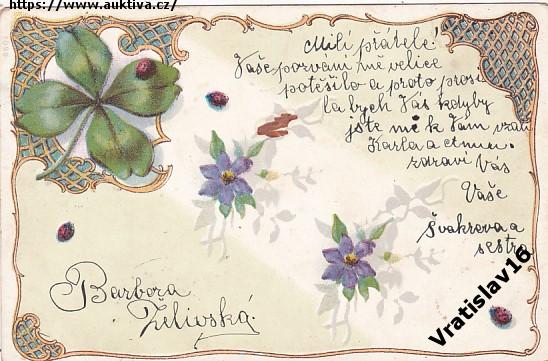 https://www.auktiva.cz/
Milí přátelé!
Vaše pozvání mě velice
potěšilo a proto prosi
la bych Vás kdyby
jste mě k Vám vzali
Karla a
zdraví Vás
Vaše
švakrova a
sestra
Barbora
Želivská.
Vratislav16